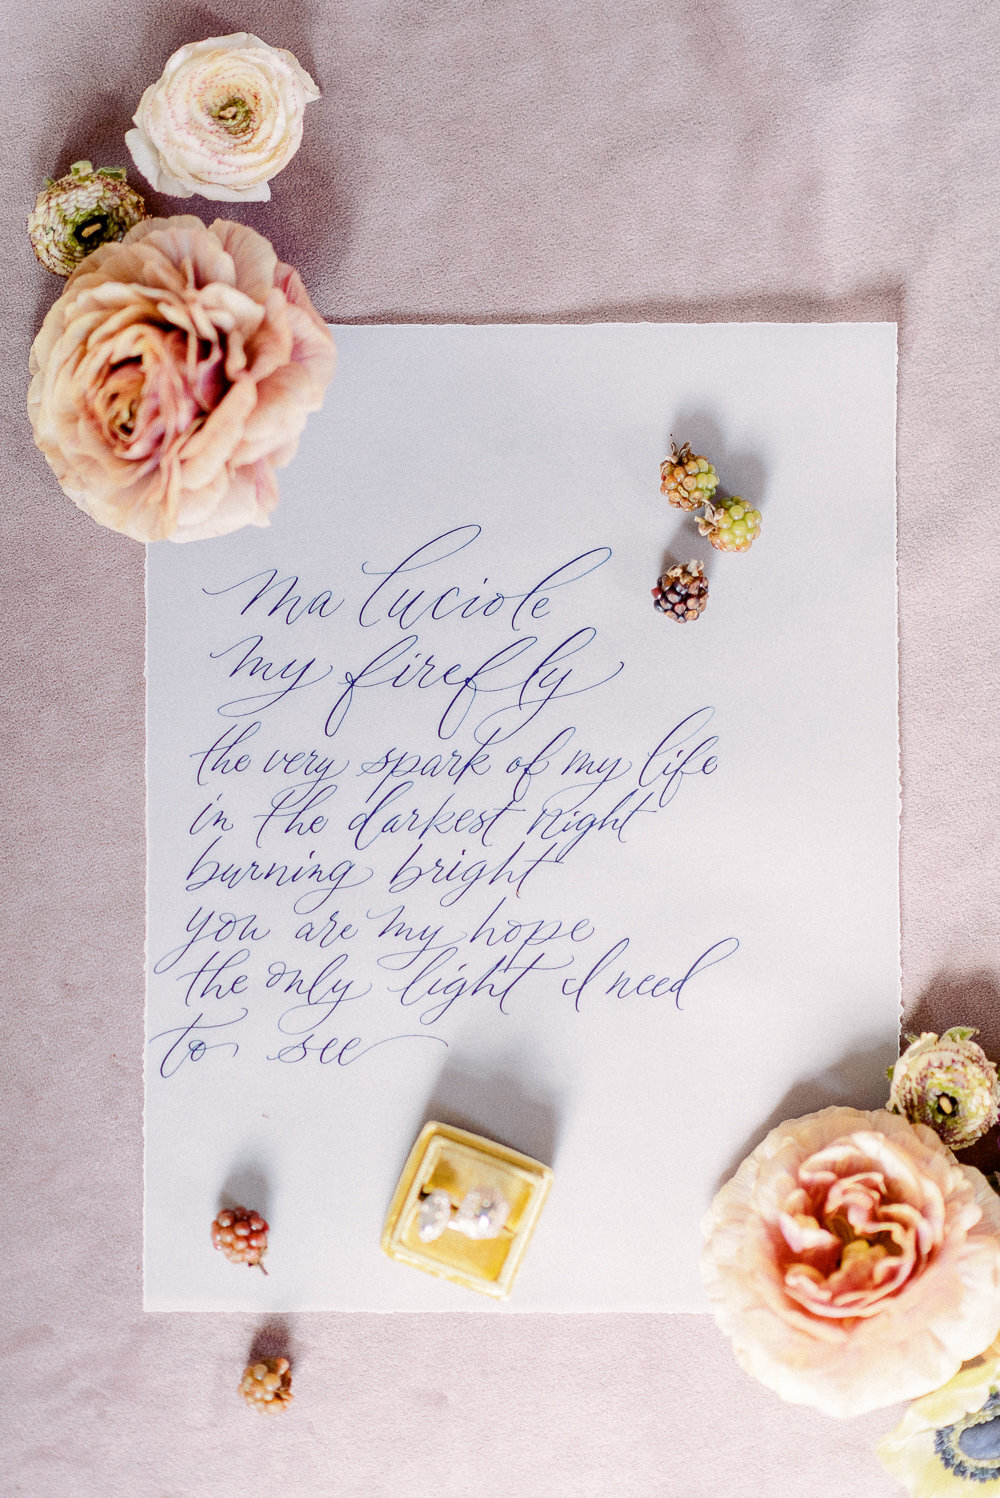 ma luciole
my firefly
the very spark of my life
in the darkest night
burning bright
you are my hope
the only light I need
to see